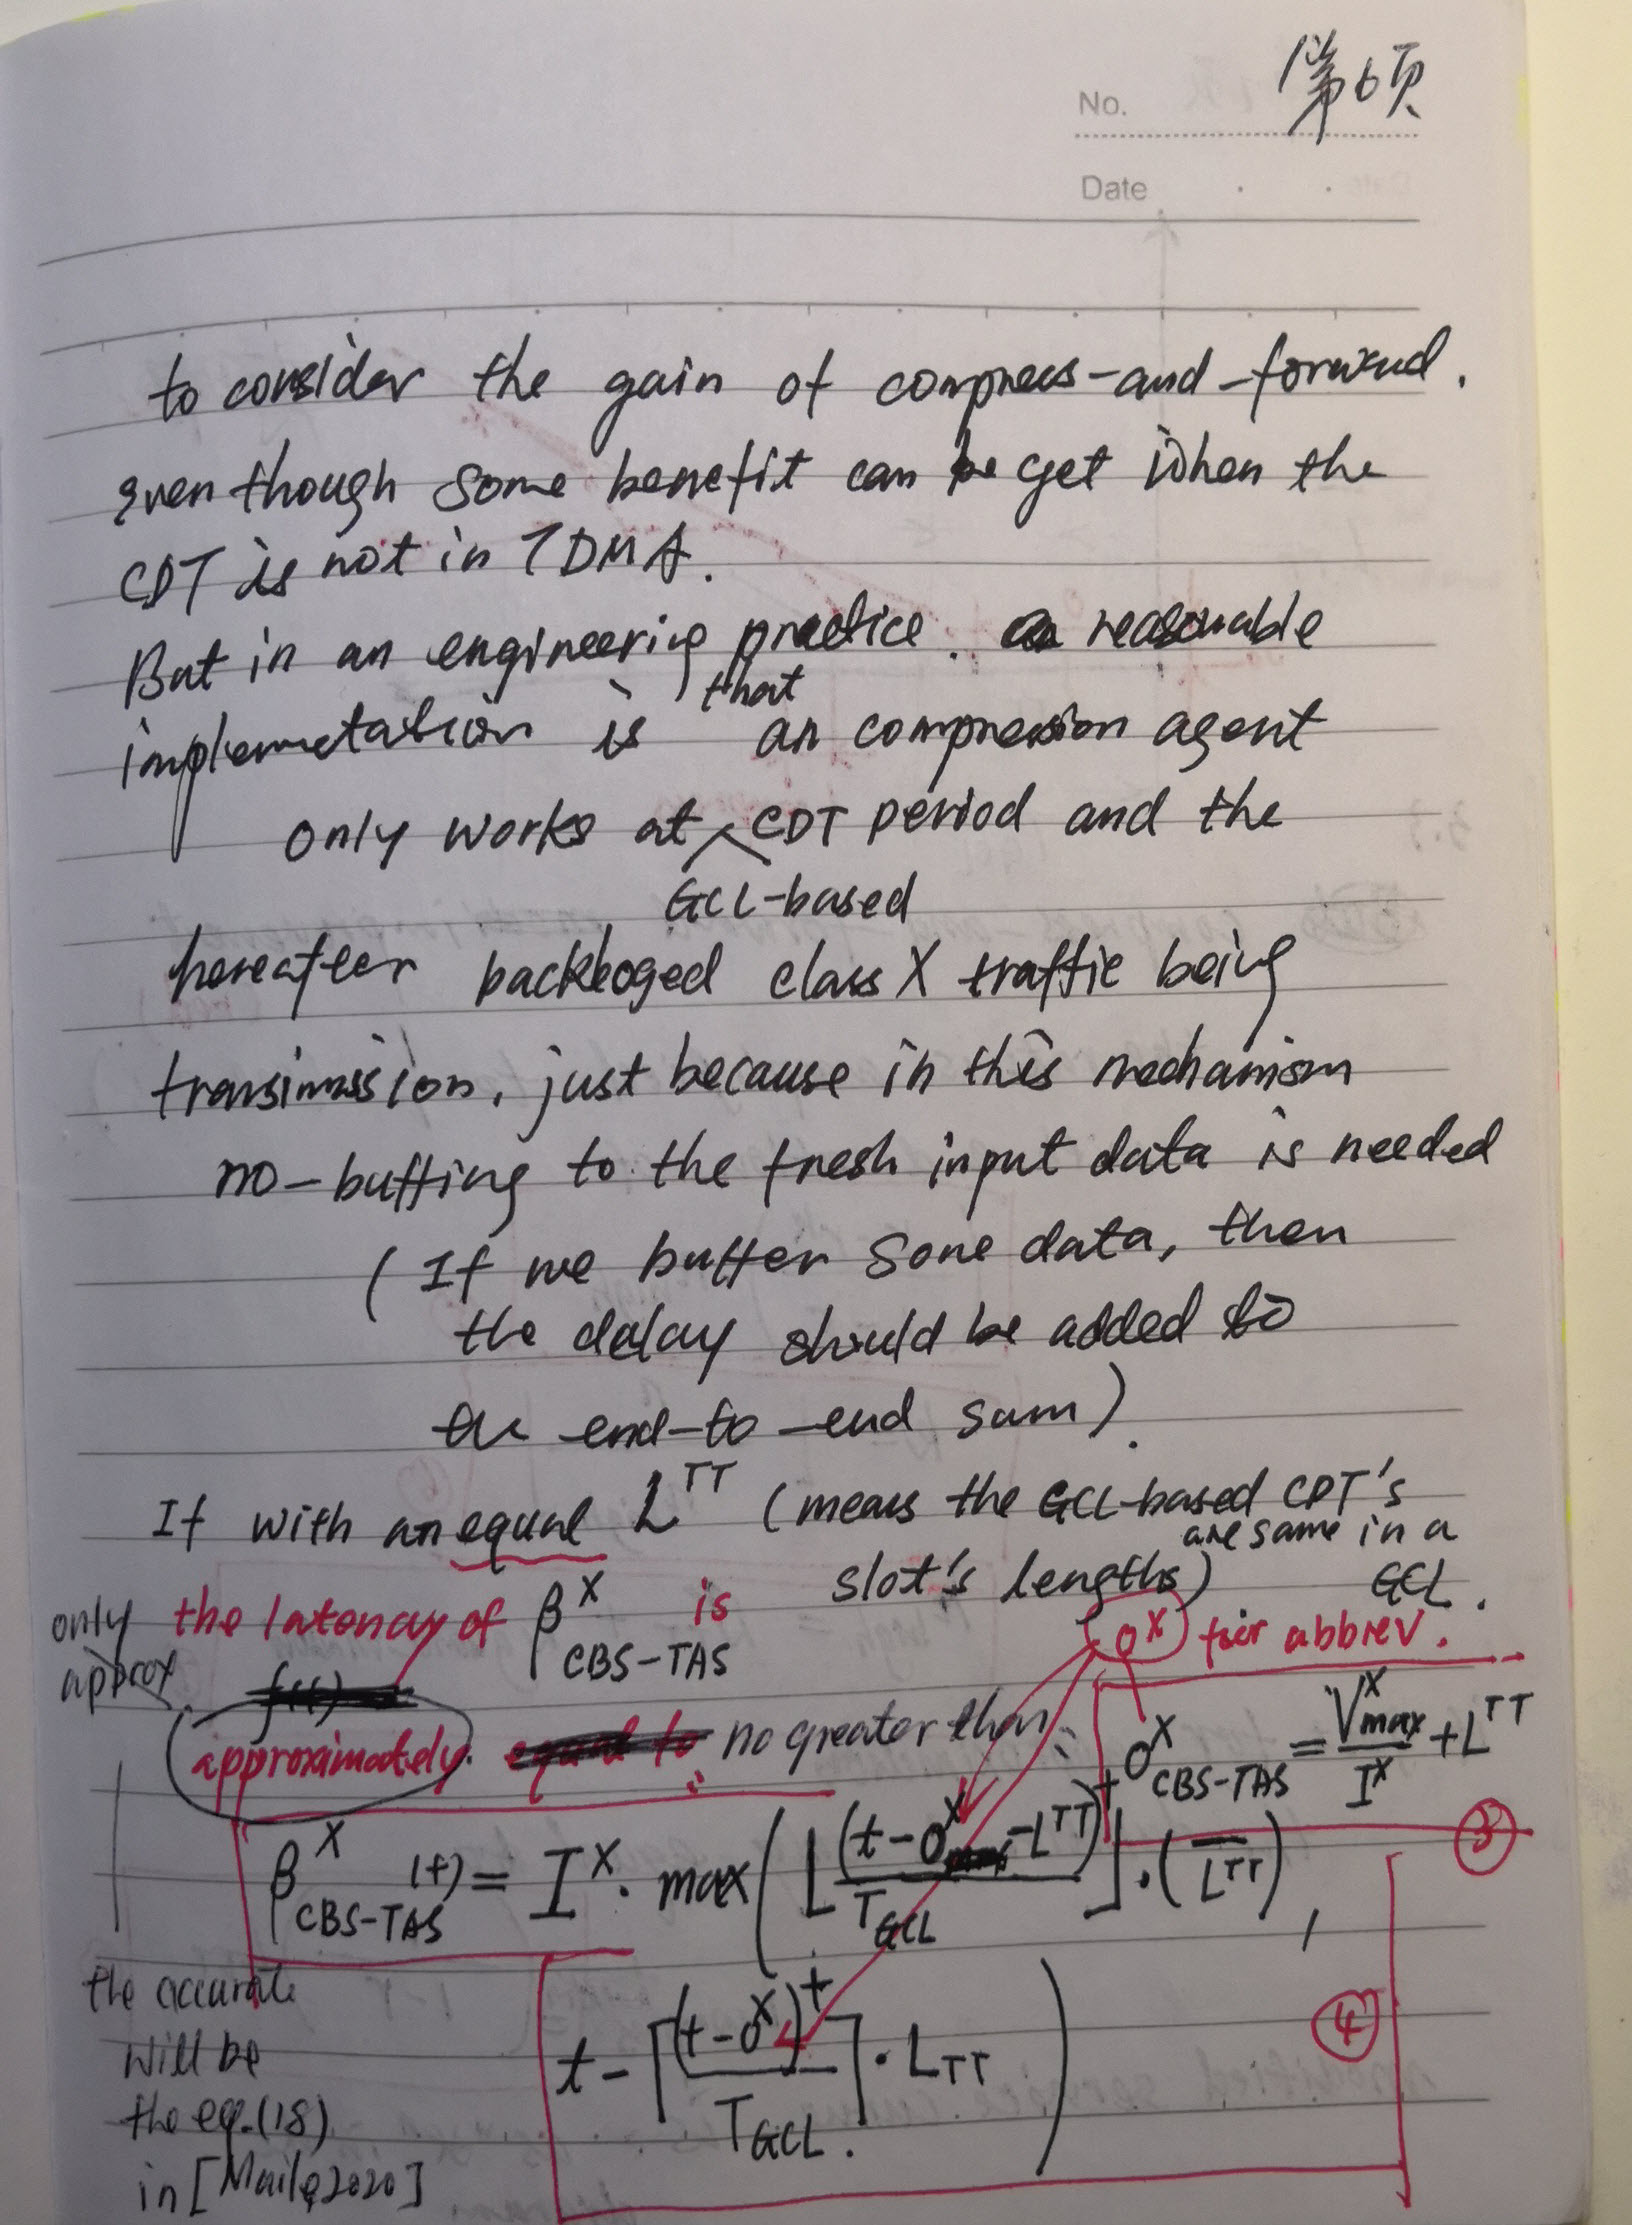 No. 第6页
Date
to consider the gain of compress-and-forward.
even though some benefit can be get when the
CDT is not in TDMA.
But in an engineering practice. a reasonable
implemetation is that an compression agent
only works at GCL-based CDT period and the
hereafter backloged class X traffic being
transimission, just because in this mechanism
no-buffing to the fresh input data is needed
(If we buffer some data, then
the delay should be added to
the end-to-end sum).
If with an equal L^TT (means the GCL-based CDT's
slot's lengths) are same in a GCL.
only approx
the latency of β^X_CBS-TAS is
σ^X for abbrev.
approximately no greater than
σ^X_CBS-TAS = V^X_max / I^X + L^TT
③
β^X_CBS-TAS (t) = I^X · max(⌊(t-σ^X-L^TT)^+ / T_GCL⌋ · (\overline{L^TT}),
t - ⌈(t-σ^X)^+ / T_GCL⌉ · L_TT)
④
the accurate
will be
the eq.(18)
in [Maile2020]